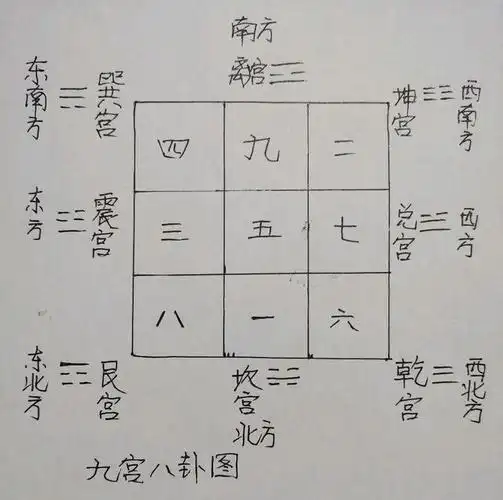 南方
离宫
东南方
巽宫
坤宫
西南方
四 九 二
东方
震宫
三 五 七
兑宫
西方
八 一 六
东北方
艮宫
坎宫
北方
乾宫
西北方
九宫八卦图